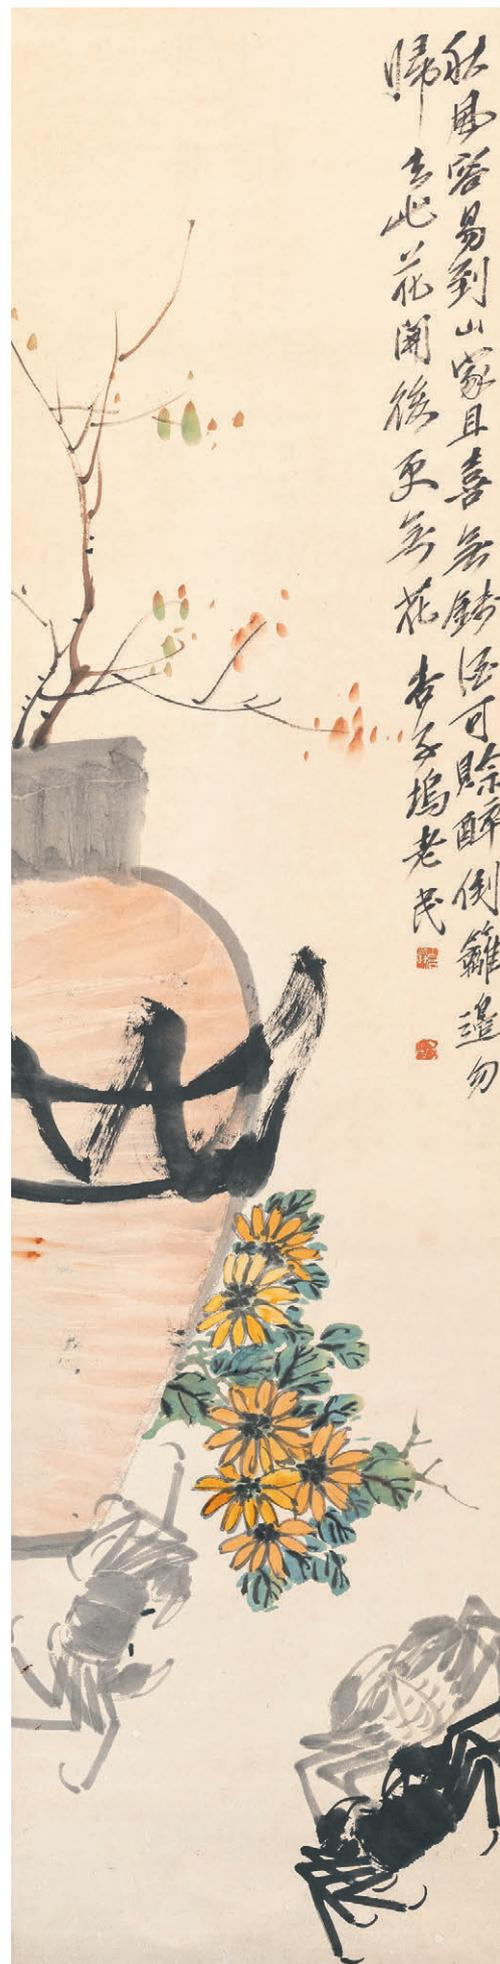 秋風容易到山家且喜無錢酒可賒醉倒籬邊勿
歸去此花開後更無花杏子塢老民